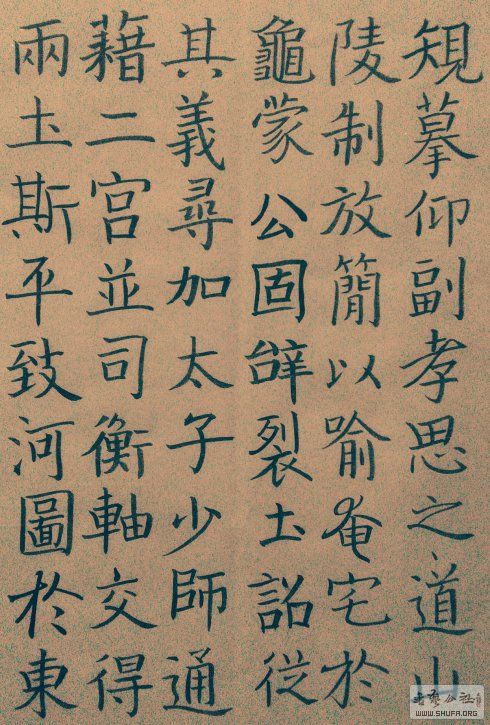 䂓摹仰副孝思之道山
陵制放簡以喻奄宅於
龜蒙公固辝裂土詔從
其義尋加太子少師通
藉二宮並司衡軸交得
兩土斯平致河圖於東
WWW.SHUFA.ORG